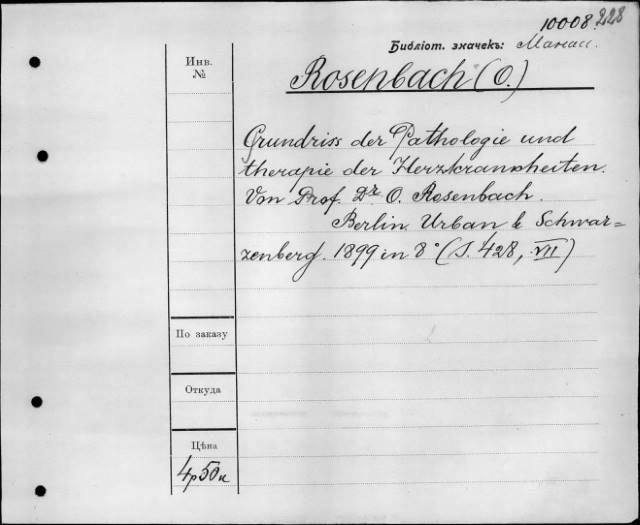 10008.
228
Библіот. значекъ:
Инв.
№
Rosenbach (O.)
Grundriss der Pathologie und
therapie der Herzkrankheiten.
Von Prof. Dr O. Rosenbach.
Berlin. Urban & Schwar=
zenberg. 1899 in 8° (S. 428, VII)
По заказу
Откуда
Цѣна
4р 50к